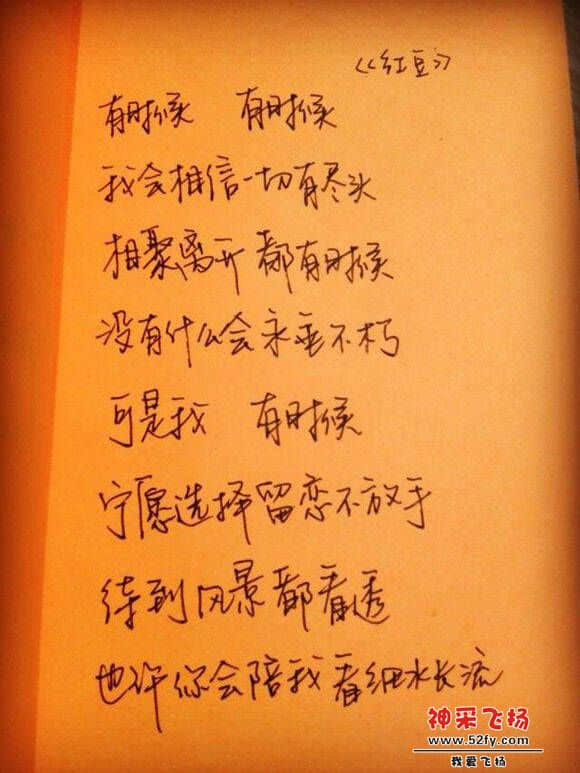 《红豆》
有时候 有时候
我会相信一切有尽头
相聚离开都有时候
没有什么会永垂不朽
可是我 有时候
宁愿选择留恋不放手
待到风景都看透
也许你会陪我看细水长流
神采飞扬
www.52fy.com
我爱飞扬